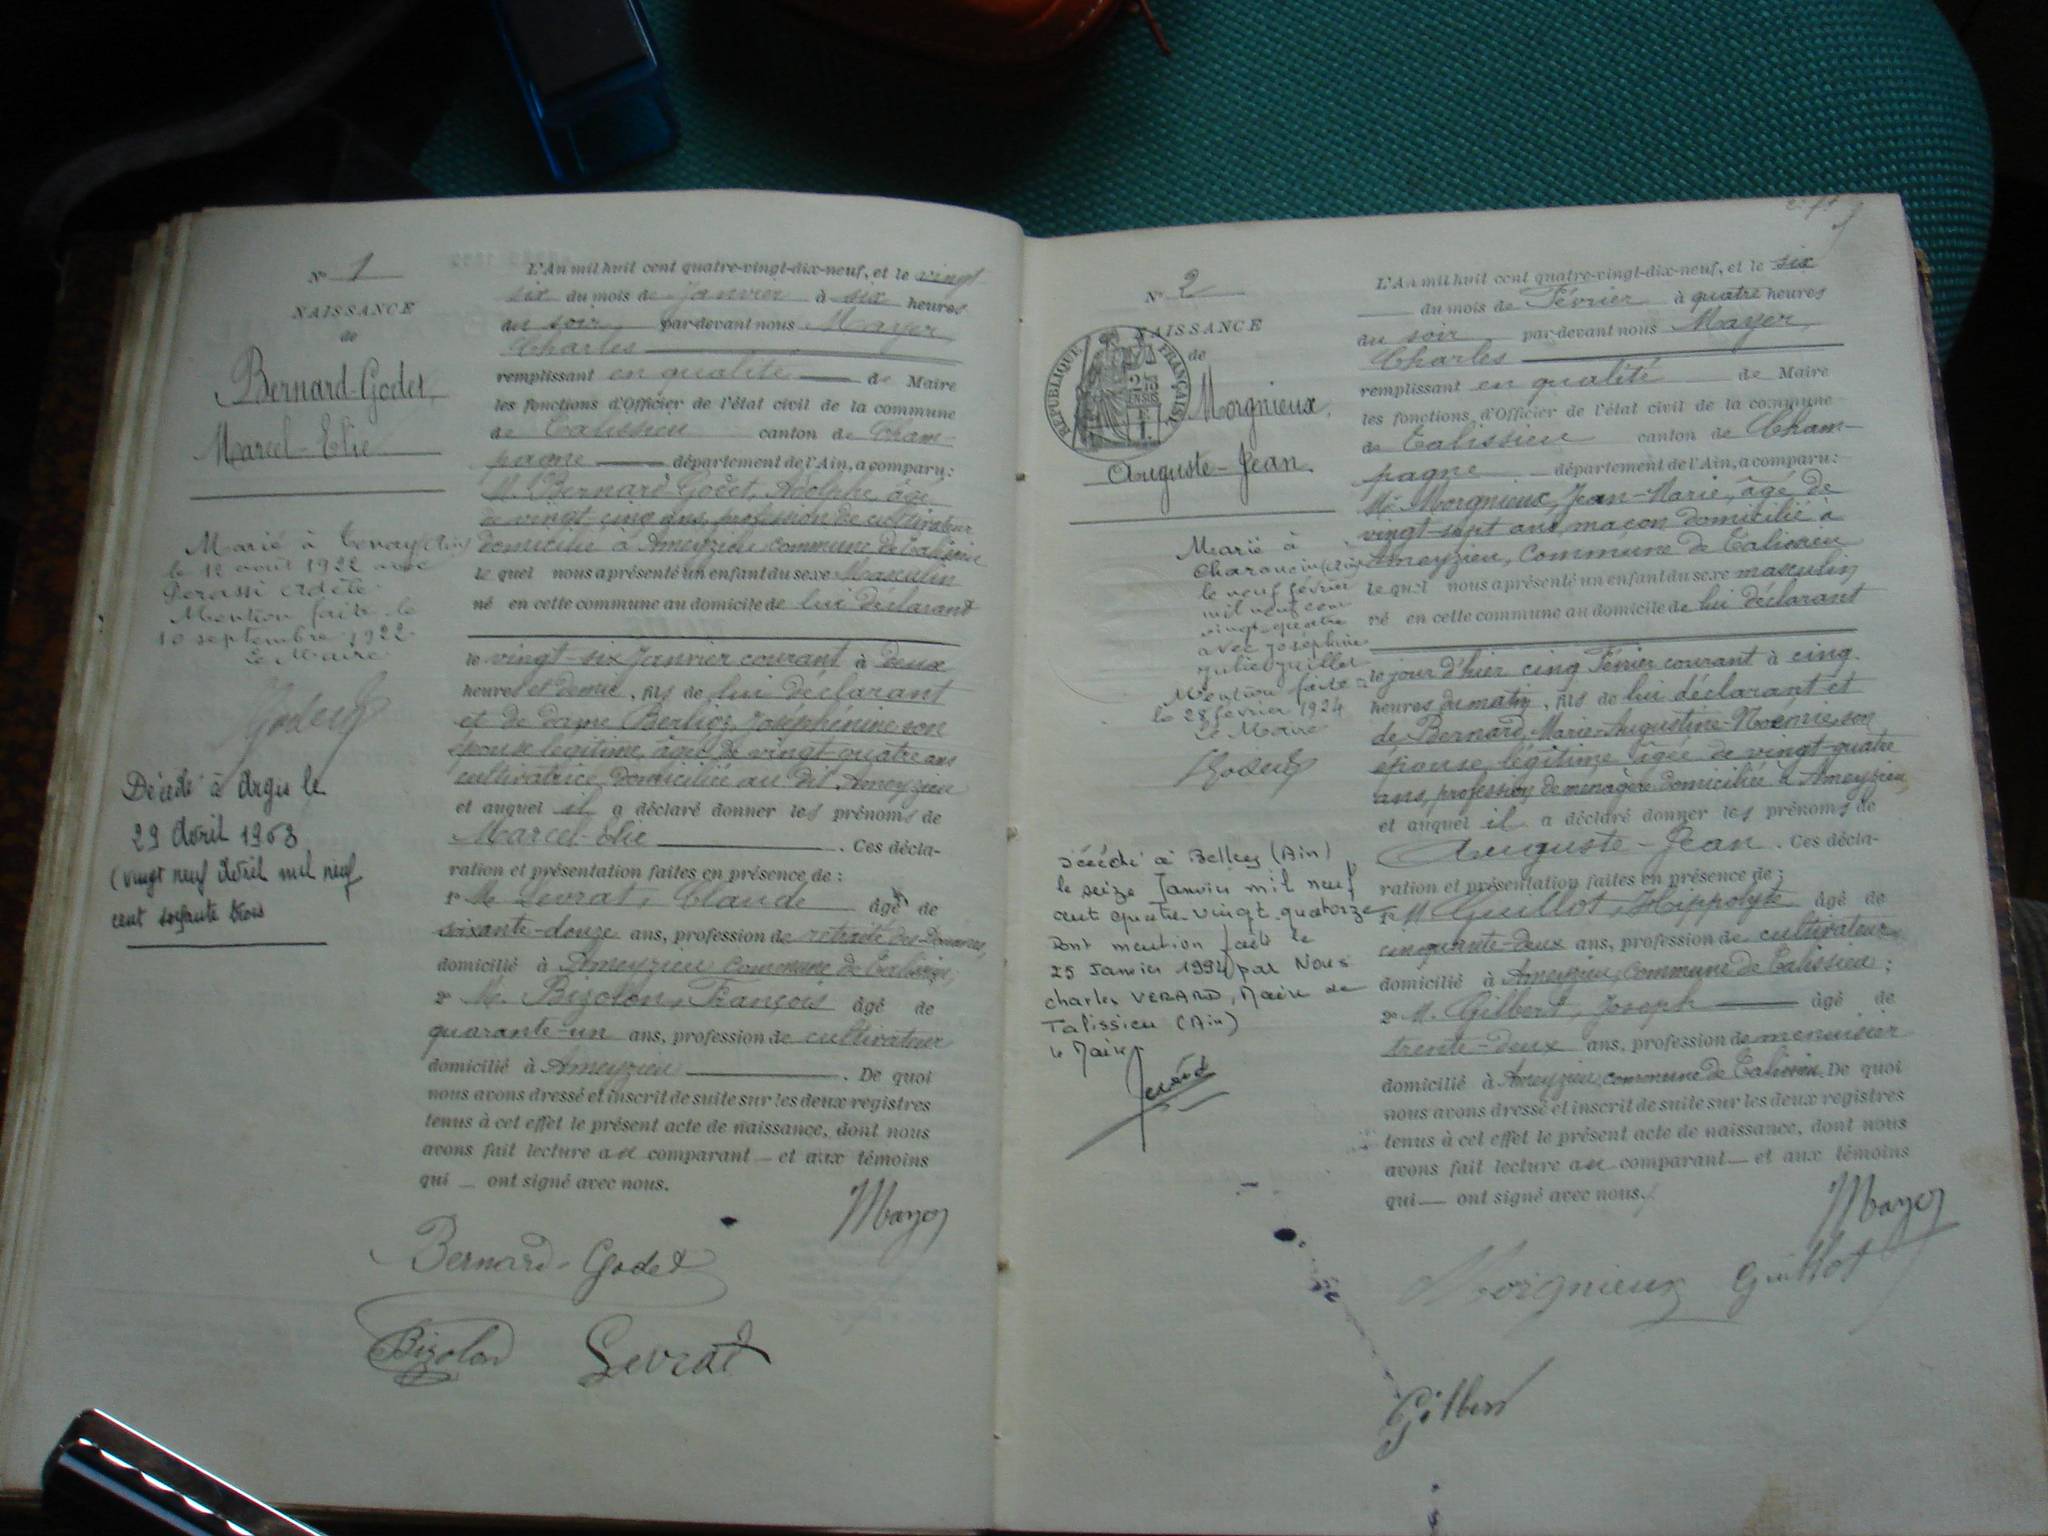 N° 1
NAISSANCE
de
Bernard-Godet,
Marcel-Elie
Marié à Tenay (Ain)
le 12 août 1922 avec
Perassi Adèle
Mention faite le
10 septembre 1922
Le Maire
Décédé à Argis le
29 Avril 1963
(vingt neuf Avril mil neuf
cent soixante trois
L'An mil huit cent quatre-vingt-dix-neuf, et le vingt
six du mois de Janvier à six heures
du soir, par-devant nous Mayer
Charles
remplissant en qualité de Maire
les fonctions d'Officier de l'état civil de la commune
de Talissieu canton de Cham-
pagne département de l'Ain, a comparu :
M. Bernard-Godet, Adolphe, âgé
de vingt-cinq ans, profession de cultivateur
domicilié à Ameyzieu commune de Talissieu
le quel nous a présenté un enfant du sexe Masculin
né en cette commune au domicile de lui déclarant
le vingt-six Janvier courant à deux
heures et demie, fils de lui déclarant
et de dame Berlioz, Joséphénine son
épouse légitime, âgée de vingt-quatre ans
cultivatrice, domiciliée au dit Ameyzieu
et auquel il a déclaré donner les prénoms de
Marcel-Elie. Ces décla-
ration et présentation faites en présence de :
1° M. Levrat, Claude âgé de
soixante-douze ans, profession de retraité des Douanes,
domicilié à Ameyzieu commune de Talissieu,
2° M. Bizolon, François âgé de
quarante-un ans, profession de cultivateur
domicilié à Ameyzieu. De quoi
nous avons dressé et inscrit de suite sur les deux registres
tenus à cet effet le présent acte de naissance, dont nous
avons fait lecture au comparant et aux témoins
qui ont signé avec nous.
Mayer
Bernard-Godet
Bizolon Levrat
N° 2
NAISSANCE
de
RÉPUBLIQUE FRANÇAISE
Morgnieux,
Auguste-Jean.
Marié à
Charancin (Ain)
le neuf février
mil neuf cent
vingt-quatre
avec Joséphine
Julie Juillet
Mention faite
le 28 février 1924
Le Maire
Décédé à Belley (Ain)
le seize Janvier mil neuf
cent quatre-vingt-quatorze
Dont mention faite le
25 Janvier 1994 par Nous
Charles VERARD, Maire de
Talissieu (Ain)
le Maire.
L'An mil huit cent quatre-vingt-dix-neuf, et le six
du mois de Février à quatre heures
du soir par-devant nous Mayer,
Charles
remplissant en qualité de Maire
les fonctions d'Officier de l'état civil de la commune
de Talissieu canton de Cham-
pagne département de l'Ain, a comparu :
M. Morgnieux, Jean-Marie, âgé de
vingt-sept ans, maçon domicilié à
Ameyzieu, commune de Talissieu
le quel nous a présenté un enfant du sexe masculin
né en cette commune au domicile de lui déclarant
le jour d'hier cinq Février courant à cinq
heures du matin, fils de lui déclarant et
de Bernard, Marie-Augustine-Noémie, son
épouse, légitime âgée de vingt-quatre
ans, profession de ménagère domiciliée à Ameyzieu
et auquel il a déclaré donner les prénoms de
Auguste-Jean. Ces décla-
ration et présentation faites en présence de :
1° M. Guillot, Hippolyte âgé de
cinquante-deux ans, profession de cultivateur
domicilié à Ameyzieu, commune de Talissieu ;
2° M. Gilbert, Joseph âgé de
trente-deux ans, profession de menuisier
domicilié à Ameyzieu commune de Talissieu. De quoi
nous avons dressé et inscrit de suite sur les deux registres
tenus à cet effet le présent acte de naissance, dont nous
avons fait lecture au comparant et aux témoins
qui ont signé avec nous.
Mayer
Morgnieux Guillot
Gilbert